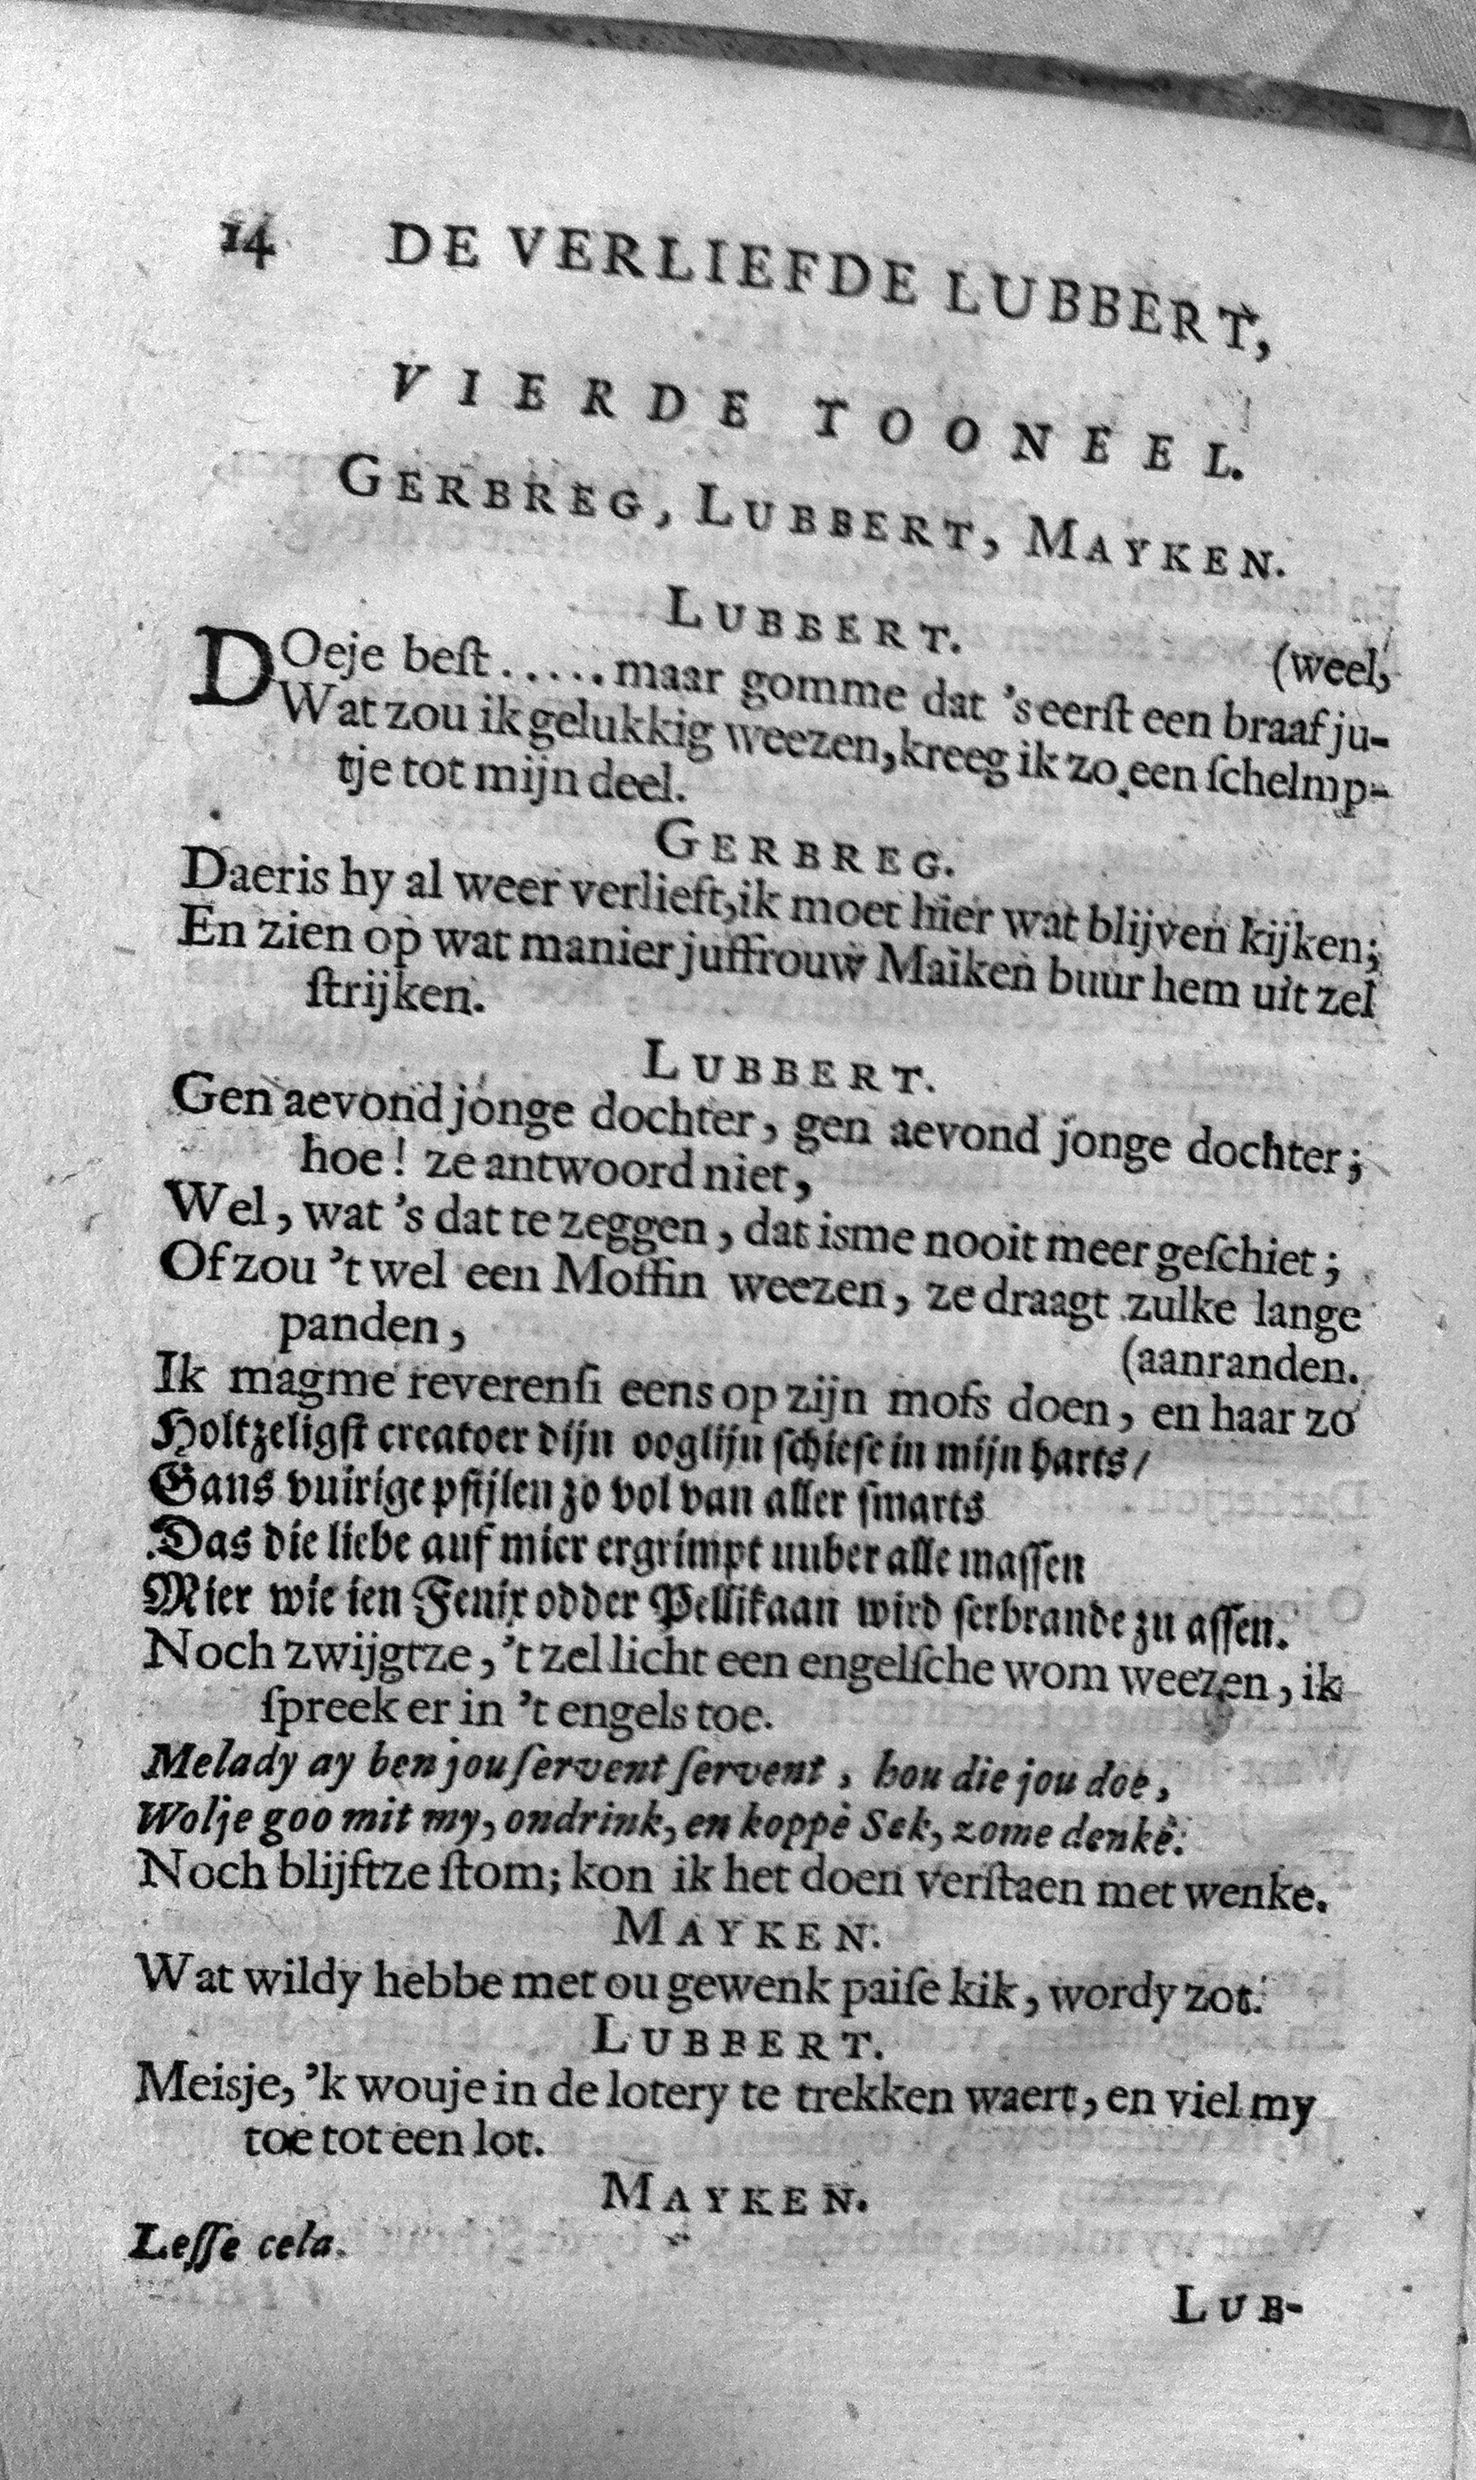 14 DE VERLIEFDE LUBBERT,
VIERDE TOONEEL.
GERBREG, LUBBERT, MAYKEN.
LUBBERT.
(weel,
DOeje beſt.....maar gomme dat 's eerſt een braaf ju-
Wat zou ik gelukkig weezen, kreeg ik zo een ſchelmp-
tje tot mijn deel.
GERBREG.
Daeris hy al weer verlieft, ik moet hier wat blijven kijken;
En zien op wat manier juffrouw Maiken buur hem uit zel
ſtrijken.
LUBBERT.
Gen aevond jonge dochter, gen aevond jonge dochter;
hoe! ze antwoord niet,
Wel, wat 's dat te zeggen, dat isme nooit meer geſchiet;
Of zou 't wel een Moffin weezen, ze draagt zulke lange
panden,
(aanranden.
Ik magme reverenſi eens op zijn mofs doen, en haar zo
Holtzeligſt creatoer dijn ooglijn ſchieſe in mijn harts/
Gans vuirige pfijlen zo vol van aller ſmarts
Das die liebe auf mier ergrimpt unber alle maſſen
Mier wie ien Fenix odder Pellikaan wird ſerbrande zu aſſen.
Noch zwijgtze, 't zel licht een engelſche wom weezen, ik
ſpreek er in 't engels toe.
Melady ay ben jou ſervent ſervent, hou die jou doe,
Wolje goo mit my, ondrink, en koppe Sek, zome denke.
Noch blijftze ſtom; kon ik het doen verſtaen met wenke.
MAYKEN.
Wat wildy hebbe met ou gewenk paiſe kik, wordy zot.
LUBBERT.
Meisje, 'k wouje in de lotery te trekken waert, en viel my
toe tot een lot.
MAYKEN.
Leſſe cela.
LUB-